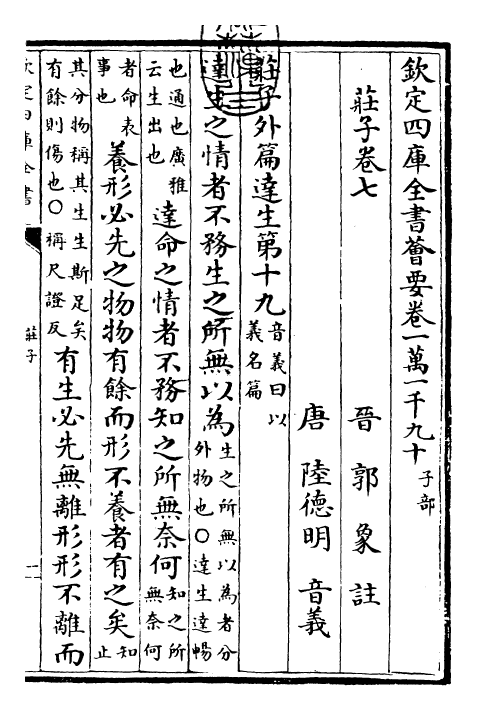 欽定四庫全書薈要卷一萬一千九十 子部
莊子卷七 晉 郭象 註
唐 陸德明 音義
莊子外篇達生第十九 音義曰以義名篇
達生之情者不務生之所無以為 生之所無以為者分外物也○達生達暢
也通也廣雅云生出也 達命之情者不務知之所無奈何 知之所無奈何
者命表事也 養形必先之物物有餘而形不養者有之矣 知止
其分物稱其生生斯足矣有餘則傷也○稱尺證反 有生必先無離形形不離而
欽定四庫全書 莊子